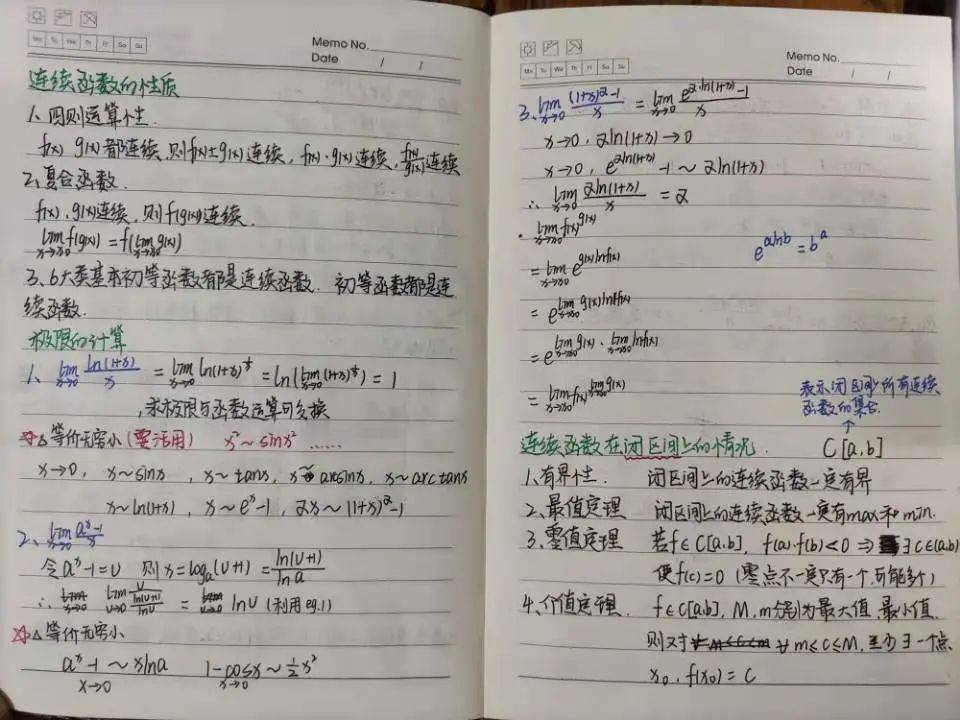 Mo Tu We Th Fr Sa Su
Memo No.
Date / /
连续函数的性质
1、四则运算性.
f(x) g(x)都连续,则f(x)±g(x)连续, f(x)·g(x)连续, f(x)/g(x)连续
2、复合函数.
f(x)、g(x)连续,则f(g(x))连续.
lim_{x→x0} f(g(x)) = f(lim_{x→x0} g(x))
3、6大类基本初等函数都是连续函数. 初等函数都是连
续函数.
极限的计算
1、lim_{x→0} ln(1+x)/x = lim_{x→0} ln(1+x)^{1/x} = ln(lim_{x→0} (1+x)^{1/x}) = 1
,求极限与函数运算可交换
☆△等价无穷小 (要活用) x²~sinx² ……
x→0, x~sinx , x~tanx, x~arcsinx, x~arctanx
x~ln(1+x) , x~e^x-1 , αx~(1+x)^α-1
2、lim_{x→0} (a^x-1)/x
令a^x-1=U 则x=log_a(U+1)=ln(U+1)/ln a
∴ lim_{x→0} lim_{U→0} U/(ln(U+1)/lnU) = lim_{U→0} lnU (利用eg.1)
☆△等价无穷小
a^x-1~xlna 1-cosx~½x²
x→0 x→0
Mo Tu We Th Fr Sa Su
Memo No.
Date / /
3、lim_{x→0} ((1+x)^α-1)/x = lim_{x→0} (e^{αln(1+x)}-1)/x
x→0, αln(1+x)→0
x→0, e^{αln(1+x)}-1~αln(1+x)
∴ lim_{x→0} αln(1+x)/x = α
· lim_{x→x0} f(x)^{g(x)}
e^{alnb}=b^a
= lim_{x→x0} e^{g(x)lnf(x)}
= e^{lim_{x→x0} g(x)lnf(x)}
= e^{lim_{x→x0} g(x)·lim_{x→x0} lnf(x)}
= lim_{x→x0} f(x)^{lim_{x→x0} g(x)}
表示闭区间上所有连续
函数的集合.
↑
连续函数在闭区间上的情况. C[a,b]
1、有界性. 闭区间上的连续函数一定有界
2、最值定理 闭区间上的连续函数一定有max和min.
3、零值定理 若f∈C[a,b], f(a)·f(b)<0 ⇒ ∃c∈(a,b)
使f(c)=0 (零点不一定只有一个,可能多个)
4、介值定理. f∈C[a,b], M、m分别为最大值、最小值
则对 ∀ m≤c≤M, 至少∃一个点
x0, f(x0)=C